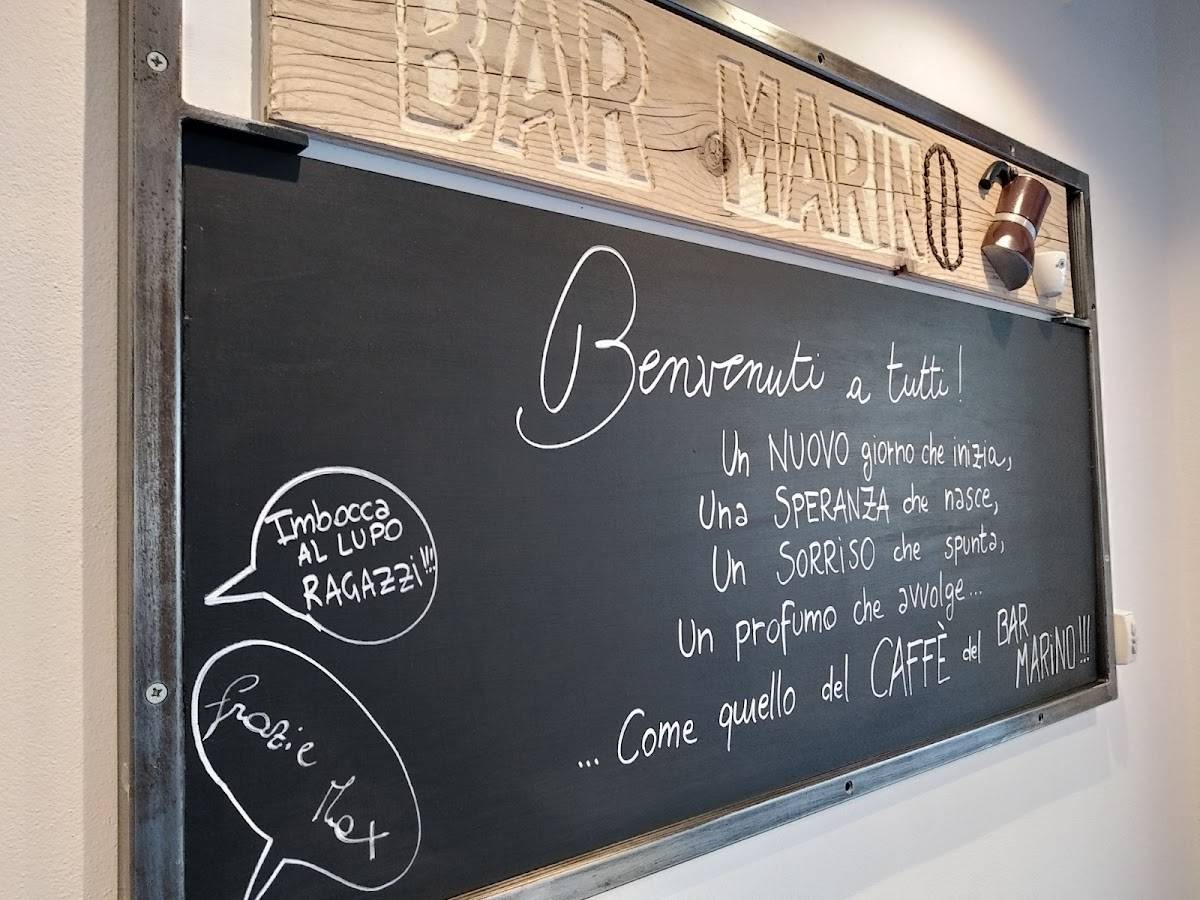 BAR MARINO
Benvenuti a tutti!
Un NUOVO giorno che inizia,
Una SPERANZA che nasce,
Un SORRISO che spunta,
Un profumo che avvolge...
... Come quello del CAFFÈ del BAR
MARINO!!!
Imbocca
AL LUPO
RAGAZZi!!!
Grazie
Max